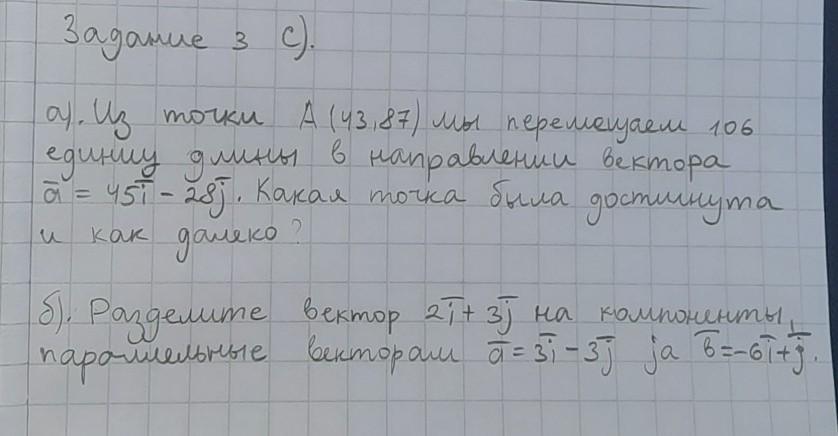 Задание 3 c).
а). Из точки A (43,87) мы перемещаем 106
единиц длины в направлении вектора
a̅ = 45i̅ - 28j̅. Какая точка была достигнута
и как далеко?
б). Разделите вектор 2i̅ + 3j̅ на компоненты,
параллельные векторам a̅ = 3i̅ - 3j̅ ja b̅ = -6i̅ + j̅.